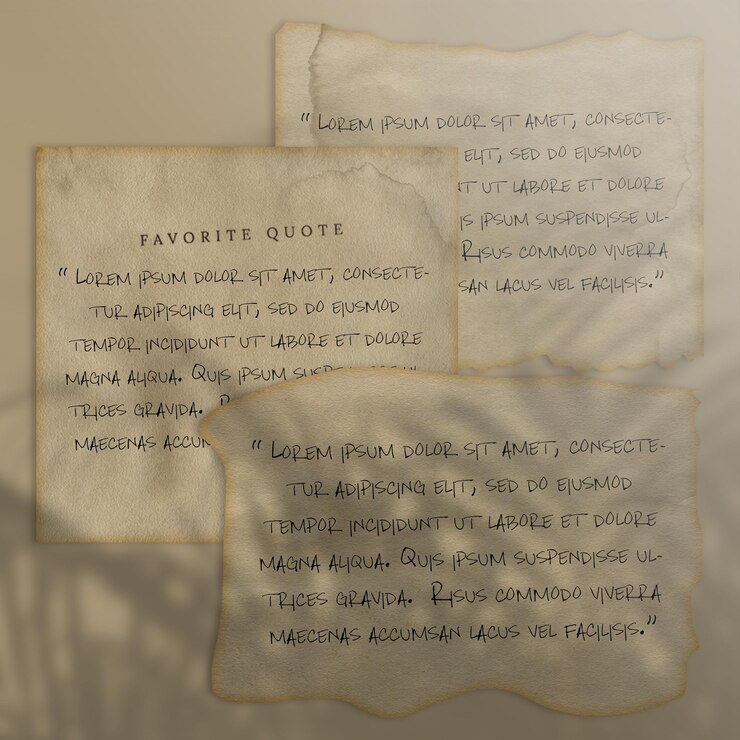 “ LOREM IPSUM DOLOR SIT AMET, CONSECTE-
ELIT, SED DO EIUSMOD
UT LABORE ET DOLORE
IPSUM SUSPENDISSE UL-
RISUS COMMODO VIVERRA
LACUS VEL FACILISIS.”
FAVORITE QUOTE
“ LOREM IPSUM DOLOR SIT AMET, CONSECTE-
TUR ADIPISCING ELIT, SED DO EIUSMOD
TEMPOR INCIDIDUNT UT LABORE ET DOLORE
MAGNA ALIQUA. QUIS IPSUM
TRICES GRAVIDA.
MAECENAS
“ LOREM IPSUM DOLOR SIT AMET, CONSECTE-
TUR ADIPISCING ELIT, SED DO EIUSMOD
TEMPOR INCIDIDUNT UT LABORE ET DOLORE
MAGNA ALIQUA. QUIS IPSUM SUSPENDISSE UL-
TRICES GRAVIDA. RISUS COMMODO VIVERRA
MAECENAS ACCUMSAN LACUS VEL FACILISIS.”